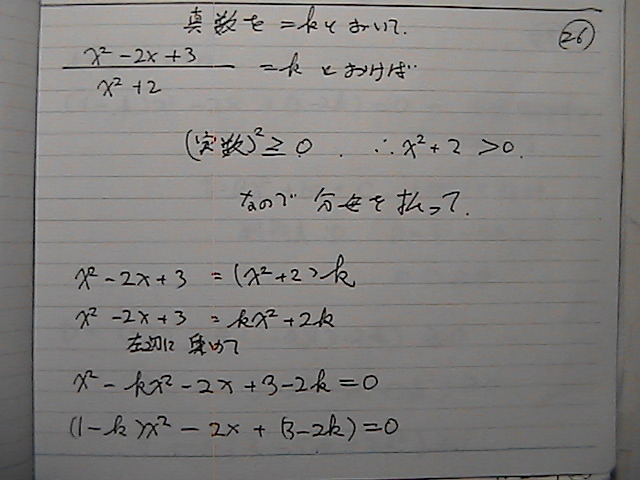 真数を=kとおいて.
(26)
x²-2x+3
x²+2
=kとおけば
(実数)²≧0. ∴x²+2>0.
なので分母を払って.
x²-2x+3=(x²+2)k
x²-2x+3=kx²+2k
左辺に集めて
x²-kx²-2x+3-2k=0
(1-k)x²-2x+(3-2k)=0